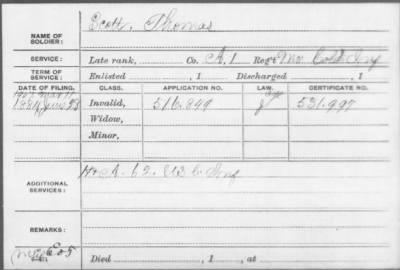 Scott, Thomas
NAME OF SOLDIER:
SERVICE: Late rank, Co. A, 1 Reg't Mo Cold Inf
TERM OF SERVICE: Enlisted , 1 Discharged , 1
DATE OF FILING. CLASS. APPLICATION NO. LAW. CERTIFICATE NO.
1884 June 23 Invalid, 516.849 531.997
Widow,
Minor,
ADDITIONAL SERVICES: A. 62. U.S.C. Inf
REMARKS:
Died , 1 , at